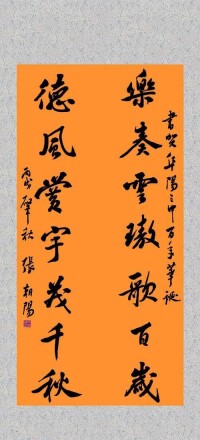 書賀阜陽三中百年華誕
樂奏雲璈歌百歲
德風黌宇茂千秋
丙戌肇秋 張朝陽